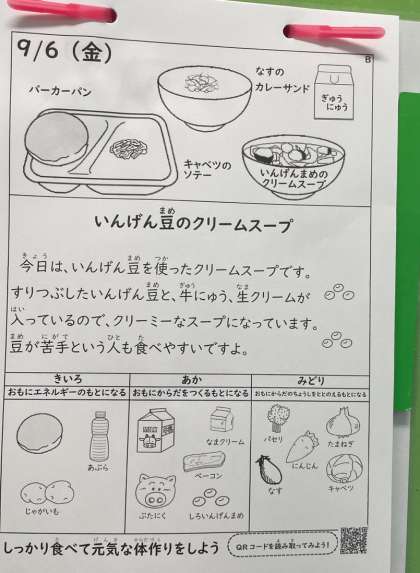 9/6 (金)
B
なすの
カレーサンド
ぎゅう
にゅう
バーカーパン
キャベツの
ソテー
いんげんまめの
クリームスープ
いんげん豆のクリームスープ
今日は、いんげん豆を使ったクリームスープです。
すりつぶしたいんげん豆と、牛にゅう、生クリームが
入っているので、クリーミーなスープになっています。
豆が苦手という人も食べやすいですよ。
きいろ
あか
みどり
おもにエネルギーのもとになる
おもにからだをつくるもとになる
おもにからだのちょうしをととのえるもとになる
あぶら
じゃがいも
なまクリーム
ベーコン
ぶたにく
しろいんげんまめ
パセリ
たまねぎ
にんじん
なす
キャベツ
しっかり食べて元気な体作りをしよう
QRコードを読み取ってみよう!